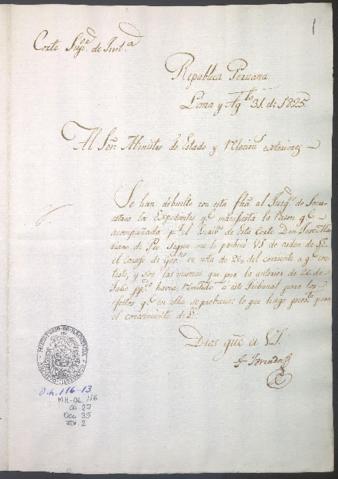 1
Corte Sup.or de Just.a
Republica Peruana
Lima y Ag.to 31 de 1825
Al Señor Ministro de Estado y Relacion.s exteriores
Se han debuelto con esta fha al Juzg.do de Secues
tros los Expedientes q.e manifiesta la Razon q.e
acompañada p.r el de esta Corte Don Juan
de me lo previno VS de orden de S.E.
el Consejo de Gov.no en nota de 26 del corriente a q.e con
testo, y son los mismos que por la anterior de 26 de
Julio pp.o havia remitido a este Tribunal para los
efectos q.e en ella se lo que hago pres.te para
el conocimiento de S.E.
Dios gûe a V.S.
O.L. 116-13
MH-OL 116
Ca 27
Doc 35
Fol 2